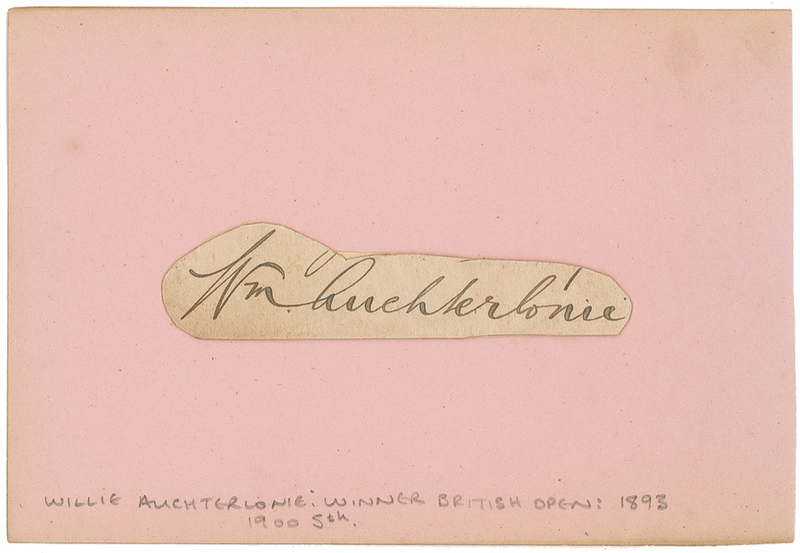 Wm. Auchterlonie
WILLIE AUCHTERLONIE: WINNER BRITISH OPEN: 1893
1900 5th.